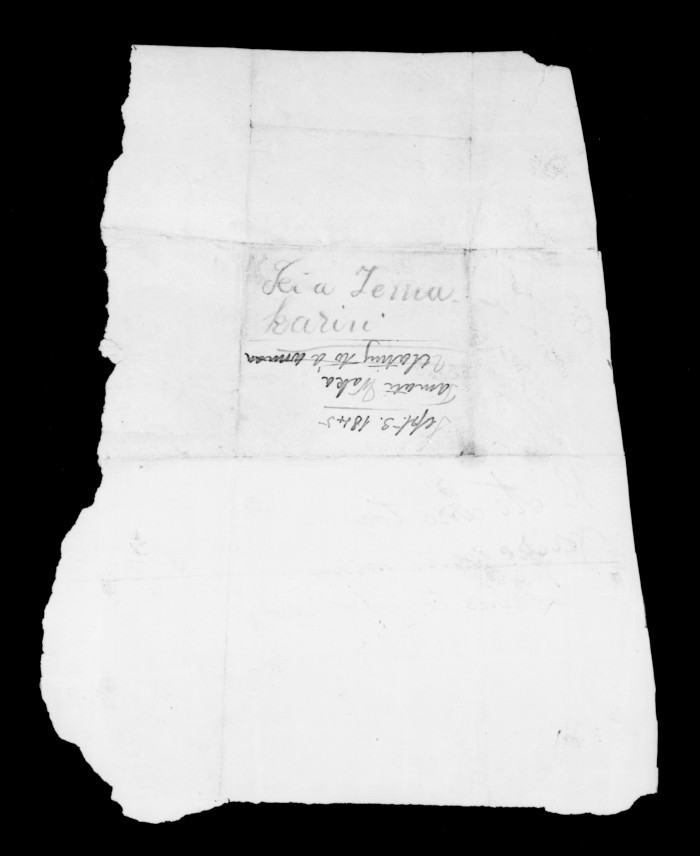 Kia Tema-
karini
Sept. 3. 1845
Tamati Waka
Relating to a woman